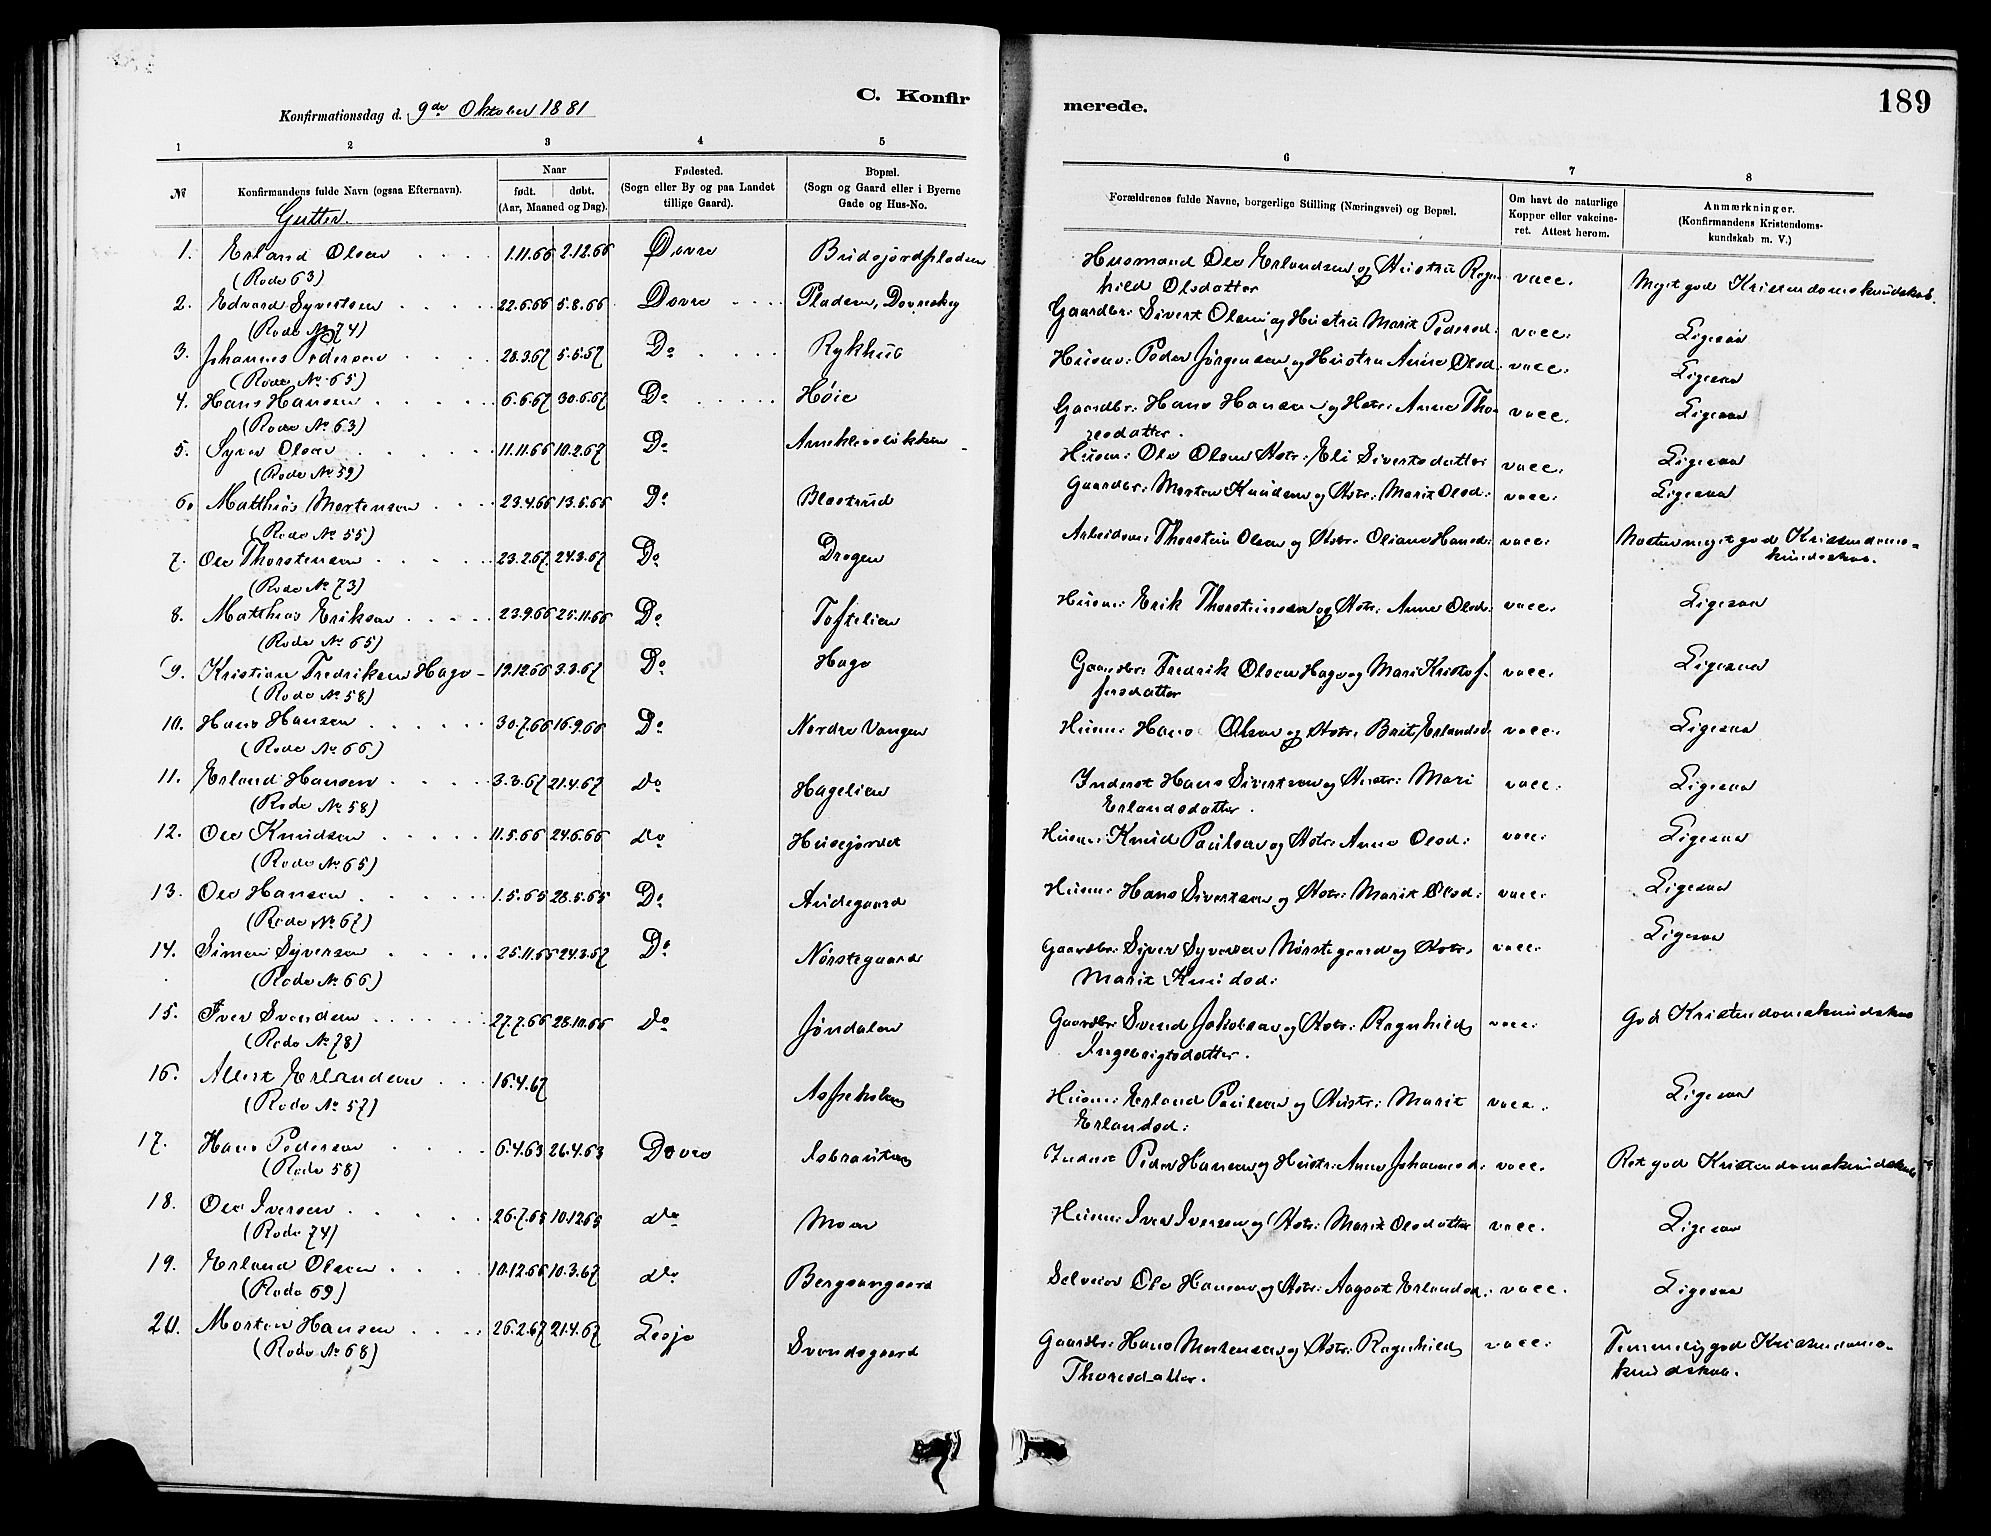 C. Konfirmerede.
189
Konfirmationsdag d. 9de Oktober 1881
1 2 3 4 5 6 7 8
№
Konfirmandens fulde Navn (ogsaa Efternavn).
Naar
født. døbt.
(Aar, Maaned og Dag).
Fødested.
(Sogn eller By og paa Landet
tillige Gaard).
Bopæl.
(Sogn og Gaard eller i Byerne
Gade og Hus-No.
Forældrenes fulde Navne, borgerlige Stilling (Næringsvei) og Bopæl.
Om havt de naturlige
Kopper eller vakcine-
ret. Attest herom.
Anmærkninger.
(Konfirmandens Kristendoms-
kundskab m. V.)
Gutter.
1. Erland Olsen 1.11.66 2.12.66 Dovre Budsjordpladsen Husmand Ole Erlandsen og Hustru Ragn- vacc. Meget god Kristendomskundskab.
(Rode 63) hild Olsdatter
2. Edvard Syvertsen 22.6.66 5.8.66 Dovre Pladsen, Dovreskog Gaardbr: Sivert Olsen og Hustru Marit Pedersd: vacc. Ligesaa
(Rode № 74)
3. Johannes Pedersen 28.3.67 5.5.67 Do Rykhus Husm: Peder Jørgensen og Hustru Anne Olsd: vacc. Ligesaa
(Rode № 65)
4. Hans Hansen 6.6.67 30.6.67 Do Høie Gaardbr: Hans Hansen og Hstr: Anne Tho- vacc. Ligesaa
(Rode № 63) resdatter.
5. Syver Olsen 11.11.66 10.2.67 Do Husm: Ole Olsen Hstr: Eli Sivertsdatter vacc. Ligesaa
(Rode № 59)
6. Matthias Mortensen 23.4.66 13.5.66 Do Blæstrud Gaardbr: Morten Knudsen og Hstr: Marit Olsd: vacc. Ligesaa
(Rode № 55)
7. Ole Thorstensen 23.2.67 24.3.67 Do Dregen Arbeidsm: Thorstein Olsen og Hstr: Oliane Hansd: vacc. Næsten meget god Kristendoms-
(Rode № 73) kundskab.
8. Matthias Eriksen 23.9.66 25.11.66 Do Toftelien Husm: Erik Thorsteinsen og Hstr: Anne Olsd: vacc. Ligesaa
(Rode № 65)
9. Kristian Fredriksen Hage 19.12.66 3.3.67 Do Hage Gaardbr: Fredrik Olsen Hage og Mari Kristof- vacc. Ligesaa
(Rode № 58) fersdatter
10. Hans Hansen 30.7.66 16.9.66 Do Nordre Vangen Husm: Hans Olsen og Hstr: Brit Erlandsd. vacc. Ligesaa
(Rode № 66)
11. Erland Hansen 3.3.67 21.4.67 Do Hagelien Inderst Hans Sivertsen og Hustr: Mari vacc. Ligesaa
(Rode № 58) Erlandsdatter.
12. Ole Knudsen 11.5.66 24.6.66 Do Husejordet Husm: Knud Paulsen og Hstr: Anne Olsd: vacc. Ligesaa
(Rode № 65)
13. Ole Hansen 1.5.65 28.5.65 Do Audegaard Husm: Hans Sivertsen og Hstr: Marit Olsd: vacc. Ligesaa
(Rode № 67)
14. Simen Syversen 25.11.66 24.3.67 Do Nørstegaard Gaardbr: Syver Syversen Nørstegaard og Hstr: vacc. Ligesaa
(Rode № 66) Marit Knudsd:
15. Iver Svendsen 27.7.66 28.10.66 Do Jøndalen Gaardbr: Svend Jakobsen og Hstr: Ragnhild vacc. God Kristendomskundskab
(Rode № 78) Ingebrigtsdatter.
16. Albert Erlandsen 16.4.67 Husm: Erland Paulsen og Hustr: Marit vacc. Ligesaa
(Rode № 57) Erlandsd:
17. Hans Pedersen 6.4.63 26.4.63 Dovre Inderst Peder Hansen og Hustr: Anne Johannesd: vacc. Ret god Kristendomskundskab
(Rode 58)
18. Ole Iversen 26.7.65 10.12.65 do Moen Husm: Iver Iversen og Hstr: Marit Olsdatter vacc. Ligesaa
(Rode 74)
19. Erland Olsen 10.12.66 10.3.67 do Bergsangaard Selveier Ole Hansen og Hstr: Aagoat Erlandsd.: vacc. Ligesaa
(Rode 69)
20. Morten Hansen 26.2.67 21.4.67 Lesje Svendsgaard Gaardbr: Hans Mortensen og Hstr: Ragnhild vacc. Temmelig god Kristendoms-
(Rode № 68) Thoresdatter. kundskab.